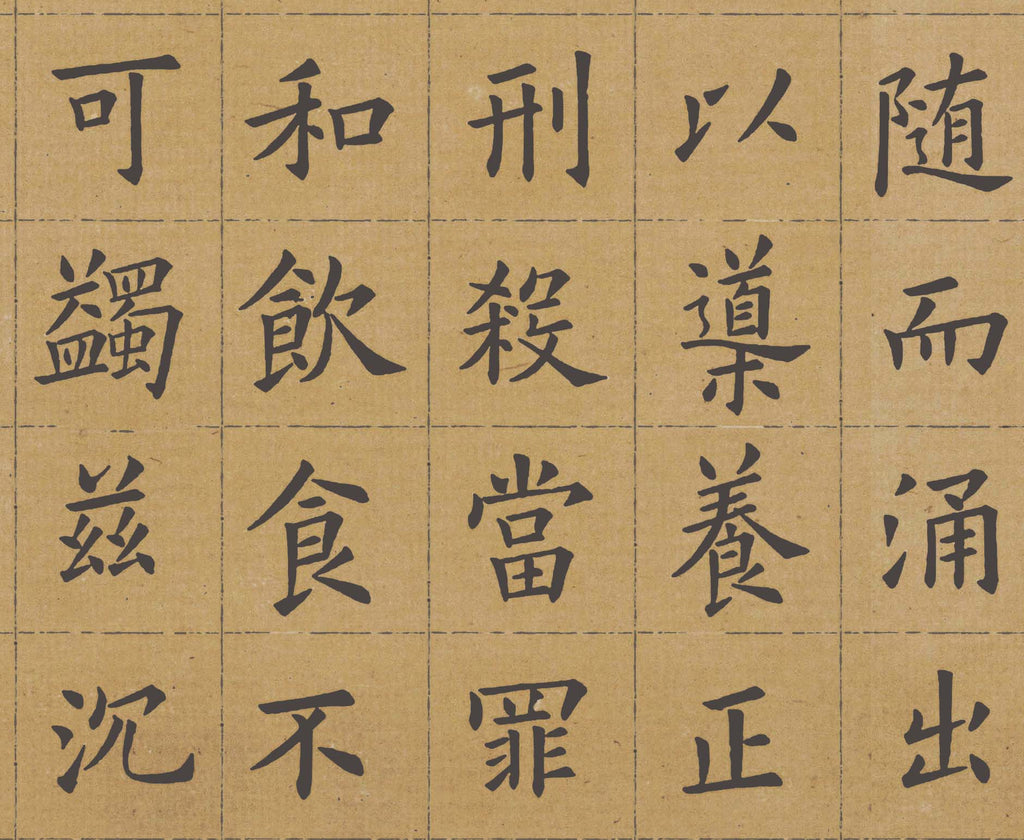 随而涌出
以導養正
刑殺當罪
和飲食不
可蠲兹沉